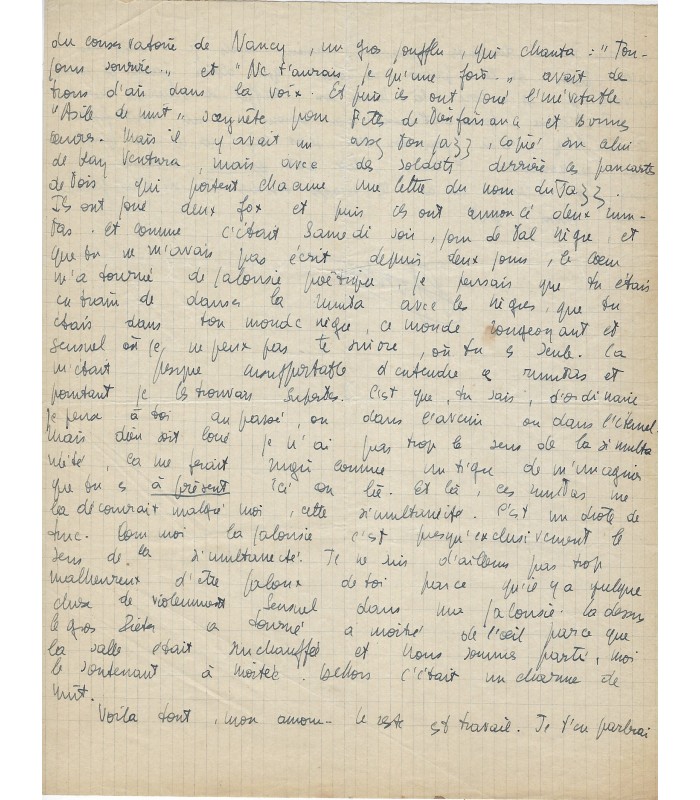 du conservatoire de Nancy, un gros joufflu, qui chanta : "Tou-
jours sourire.." et "Ne t'aurais je qu'une fois.." avait de
trous d'air dans la voix. Et puis ils ont joué l'inévitable
"Asile de nuit" saynète pour Fêtes de Bienfaisance et Bonnes
œuvres. Mais il y avait un assez bon jazz, copié sur celui
de Ray Ventura, mais avec des soldats derrière les pancartes
de bois qui portent chacune une lettre du nom du Jazz.
Ils ont joué deux fox et puis ils ont annoncé deux rum-
bas. et comme c'était Samedi soir, jour de bal nègre, et
que tu ne m'avais pas écrit depuis deux jours, le cœur
m'a tourné de jalousie poétique, je pensais que tu étais
en train de danser la rumba avec les nègres, que tu
étais dans ton monde nègre, ce monde rougeoyant et
sensuel où je ne peux pas te suivre, où tu es seule. Ca
m'était presque insupportable d'entendre ces rumbas et
pourtant je les trouvais superbes. C'est que, tu sais, d'ordinaire
je pense à toi au passé, ou dans l'avenir ou dans l'éternel.
Mais dieu soit loué je n'ai pas trop le sens de la simulta
néité, ça me ferait rugir comme un tigre de m'imaginer
que tu es à présent ici ou là. Et là, ces rumbas me
la découvrait malgré moi, cette simultanéité. C'est un drôle de
truc. Pour moi la jalousie c'est presqu'exclusivement le
sens de la simultanéité. Je ne suis d'ailleurs pas trop
malheureux d'être jaloux de toi parce qu'il y a quelque
chose de violemment sensuel dans ma jalousie. Là dessus
le gros Pieter a tourné à moitié de l'œil parce que
la salle était surchauffée et nous sommes parti, moi
le soutenant à moitié. Dehors c'était un charme de
nuit.
Voila tout, mon amour. le reste est travail. Je t'en parlerai